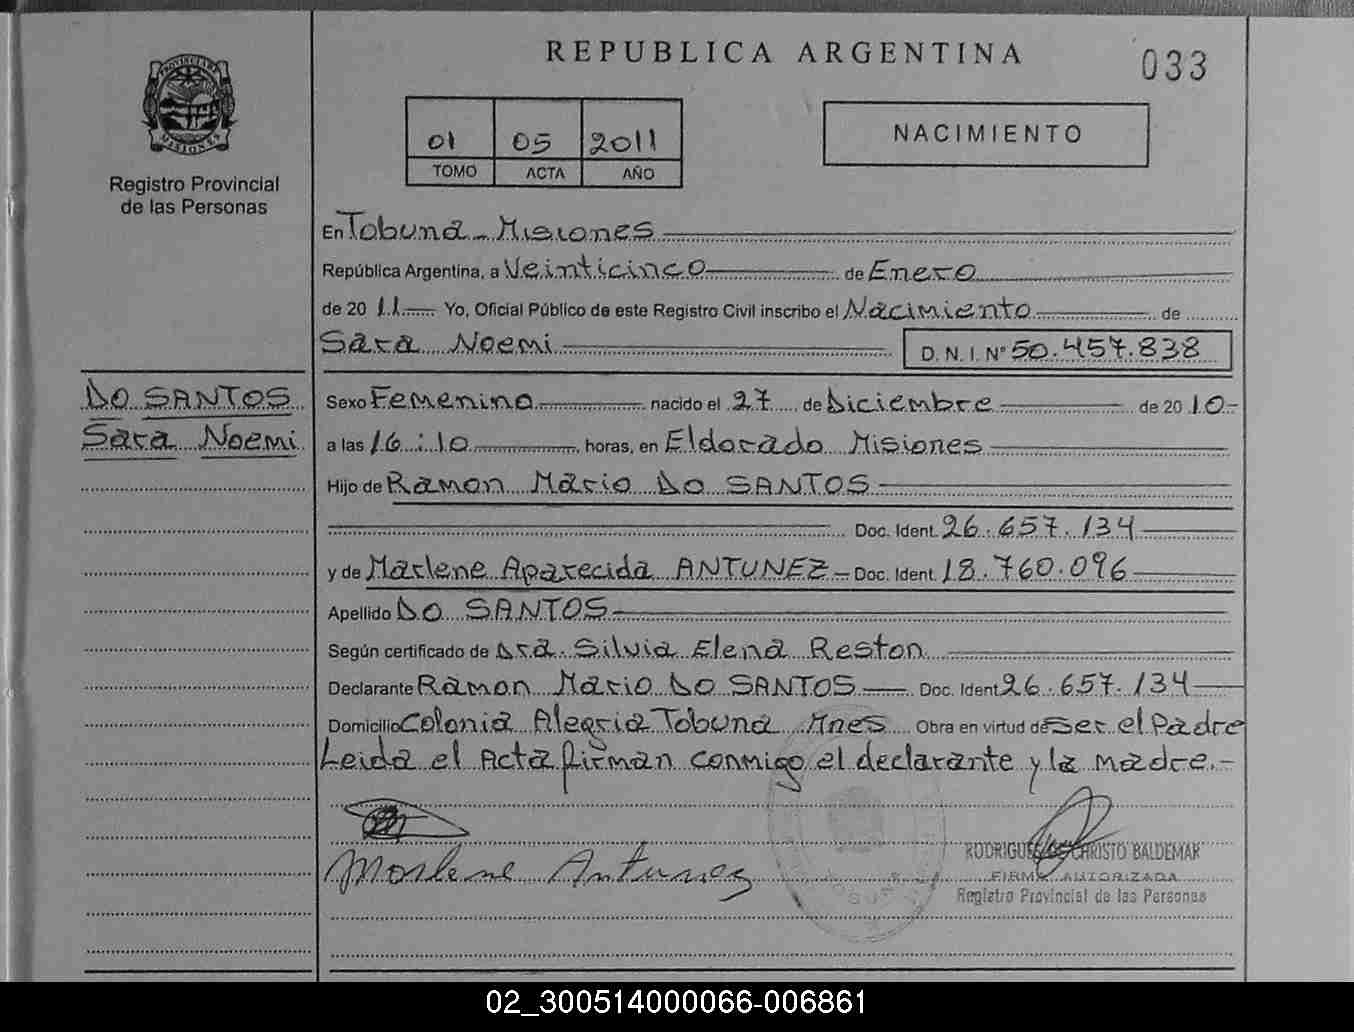 REPUBLICA ARGENTINA
033
PROVINCIA DE
MISIONES
Registro Provincial
de las Personas
01 05 2011
TOMO ACTA AÑO
NACIMIENTO
En Tobuna - Misiones
República Argentina, a Veinticinco de Enero
de 20 11 Yo, Oficial Público de este Registro Civil inscribo el Nacimiento de
Sara Noemi D. N. I. Nº 50.457.838
DO SANTOS
Sara Noemi
Sexo Femenino nacido el 27 de Diciembre de 2010-
a las 16:10 horas, en Eldorado Misiones
Hijo de Ramon Mario DO SANTOS
Doc. Ident. 26.657.134
y de Marlene Aparecida ANTUNEZ - Doc. Ident. 18.760.096
Apellido DO SANTOS
Según certificado de Dra Silvia Elena Reston
Declarante Ramon Mario DO SANTOS Doc. Ident 26.657.134
Domicilio Colonia Alegria Tobuna Mnes Obra en virtud de Ser el Padre
Leida el Acta firman conmigo el declarante y la madre.-
Marlene Antunez
BALDEMAR
FIRMA AUTORIZADA
Registro Provincial de las Personas
02_300514000066-006861